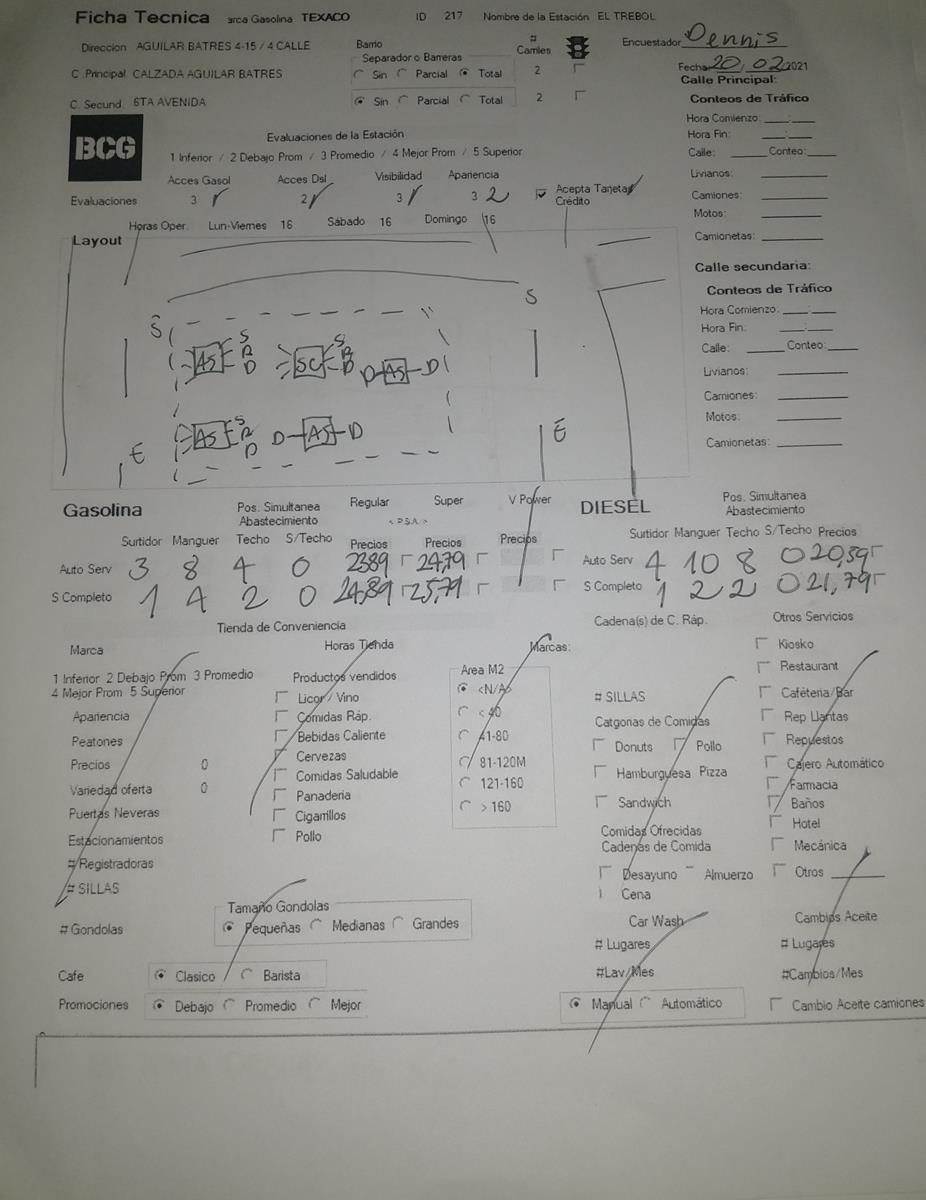 Ficha Tecnica arca Gasolina TEXACO ID 217 Nombre de la Estación EL TREBOL
Direccion AGUILAR BATRES 4-15 / 4 CALLE Barrio # Carriles Encuestador Dennis
Separador o Barreras
C .Principal CALZADA AGUILAR BATRES Sin Parcial Total 2 Fecha 20, 02, 2021
C. Secund. 6TA AVENIDA Sin Parcial Total 2
Calle Principal:
Conteos de Tráfico
Hora Comienzo: ___:___
Hora Fin: ___:___
Calle: ____ Conteo: ____
Livianos: ____
Camiones: ____
Motos: ____
Camionetas: ____
BCG
Evaluaciones de la Estación
1 Inferior / 2 Debajo Prom / 3 Promedio / 4 Mejor Prom / 5 Superior
Acces Gasol Acces Dsl Visibilidad Apariencia Acepta Tarjeta Crédito
Evaluaciones 3 2 3 3 2
Horas Oper. Lun-Viernes 16 Sábado 16 Domingo 16
Layout
S S
AS S R D SC S R D D AS D
AS S R D D AS D
E E
Calle secundaria:
Conteos de Tráfico
Hora Comienzo: ___:___
Hora Fin: ___:___
Calle: ____ Conteo: ____
Livianos: ____
Camiones: ____
Motos: ____
Camionetas: ____
Gasolina Pos. Simultanea Abastecimiento Regular Super V Power
< P.S.A. >
Surtidor Manguer Techo S/Techo Precios Precios Precios
Auto Serv 3 8 4 0 23.89 24,79
S Completo 1 4 2 0 24,89 25,79
DIESEL Pos. Simultanea Abastecimiento
Surtidor Manguer Techo S/Techo Precios
Auto Serv 4 10 8 0 20,59
S Completo 1 2 2 0 21,79
Tienda de Conveniencia
Marca Horas Tienda Marcas:
1 Inferior 2 Debajo Prom 3 Promedio
4 Mejor Prom 5 Superior
Apariencia
Peatones
Precios 0
Variedad oferta 0
Puertas Neveras
Estacionamientos
# Registradoras
# SILLAS
# Gondolas
Productos vendidos
Licor / Vino
Comidas Ráp.
Bebidas Caliente
Cervezas
Comidas Saludable
Panaderia
Cigarrillos
Pollo
Area M2
<N/A>
< 40
41-80
81-120M
121-160
> 160
Tamaño Gondolas
Pequeñas Medianas Grandes
Cafe Clasico Barista
Promociones Debajo Promedio Mejor
Cadena(s) de C. Ráp.
# SILLAS
Catgorias de Comidas
Donuts Pollo
Hamburguesa Pizza
Sandwich
Comidas Ofrecidas
Cadenas de Comida
Desayuno Almuerzo
Cena
Car Wash
# Lugares
#Lav/Mes
Manual Automático
Otros Servicios
Kiosko
Restaurant
Caféteria/Bar
Rep Llantas
Repuestos
Cajero Automático
Farmacia
Baños
Hotel
Mecánica
Otros ____
Cambios Aceite
# Lugares
#Cambios/Mes
Cambio Aceite camiones